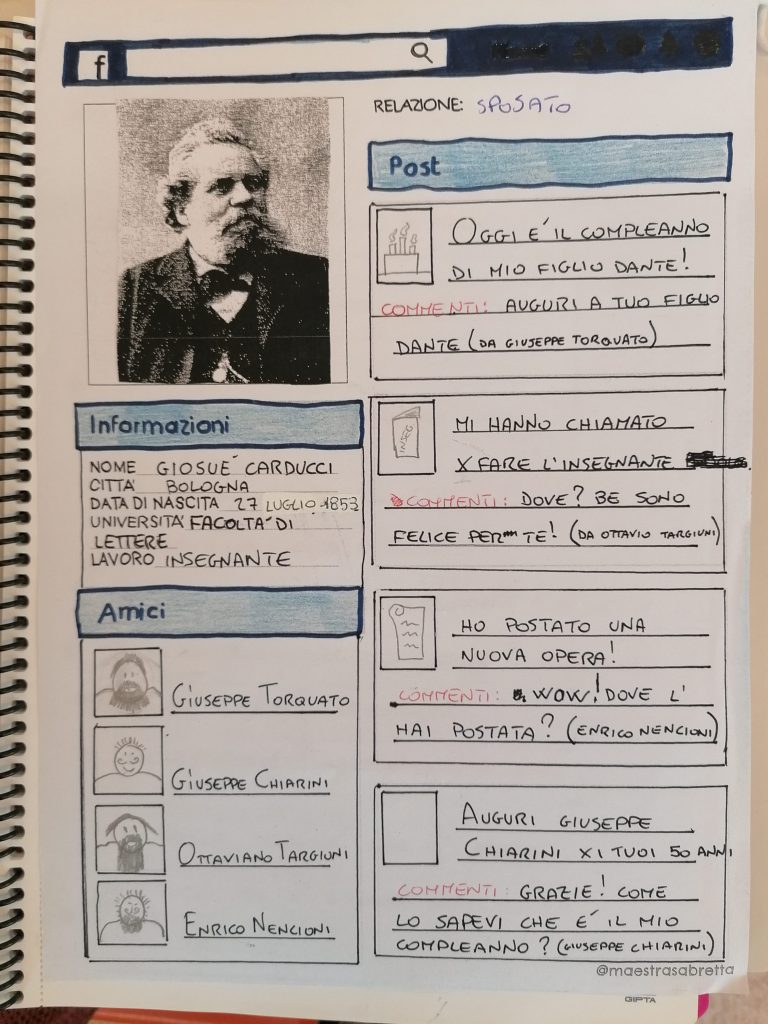 f
RELAZIONE: SPOSATO
Informazioni
NOME GIOSUÉ CARDUCCI
CITTÀ BOLOGNA
DATA DI NASCITA 27 LUGLIO 1853
UNIVERSITÀ FACOLTÀ DI
LETTERE
LAVORO INSEGNANTE
Amici
GIUSEPPE TORQUATO
GIUSEPPE CHIARINI
OTTAVIANO TARGIUNI
ENRICO NENCIONI
Post
OGGI E' IL COMPLEANNO
DI MIO FIGLIO DANTE!
COMMENTI: AUGURI A TUO FIGLIO
DANTE (DA GIUSEPPE TORQUATO)
INSEG
MI HANNO CHIAMATO
X FARE L'INSEGNANTE
COMMENTI: DOVE? BE SONO
FELICE PER TE! (DA OTTAVIO TARGIUNI)
HO POSTATO UNA
NUOVA OPERA!
COMMENTI: WOW! DOVE L'
HAI POSTATA? (ENRICO NENCIONI)
AUGURI GIUSEPPE
CHIARINI X I TUOI 50 ANNI
COMMENTI: GRAZIE! COME
LO SAPEVI CHE E' IL MIO
COMPLEANNO? (GIUSEPPE CHIARINI)
@maestrasabretta
GIPTA